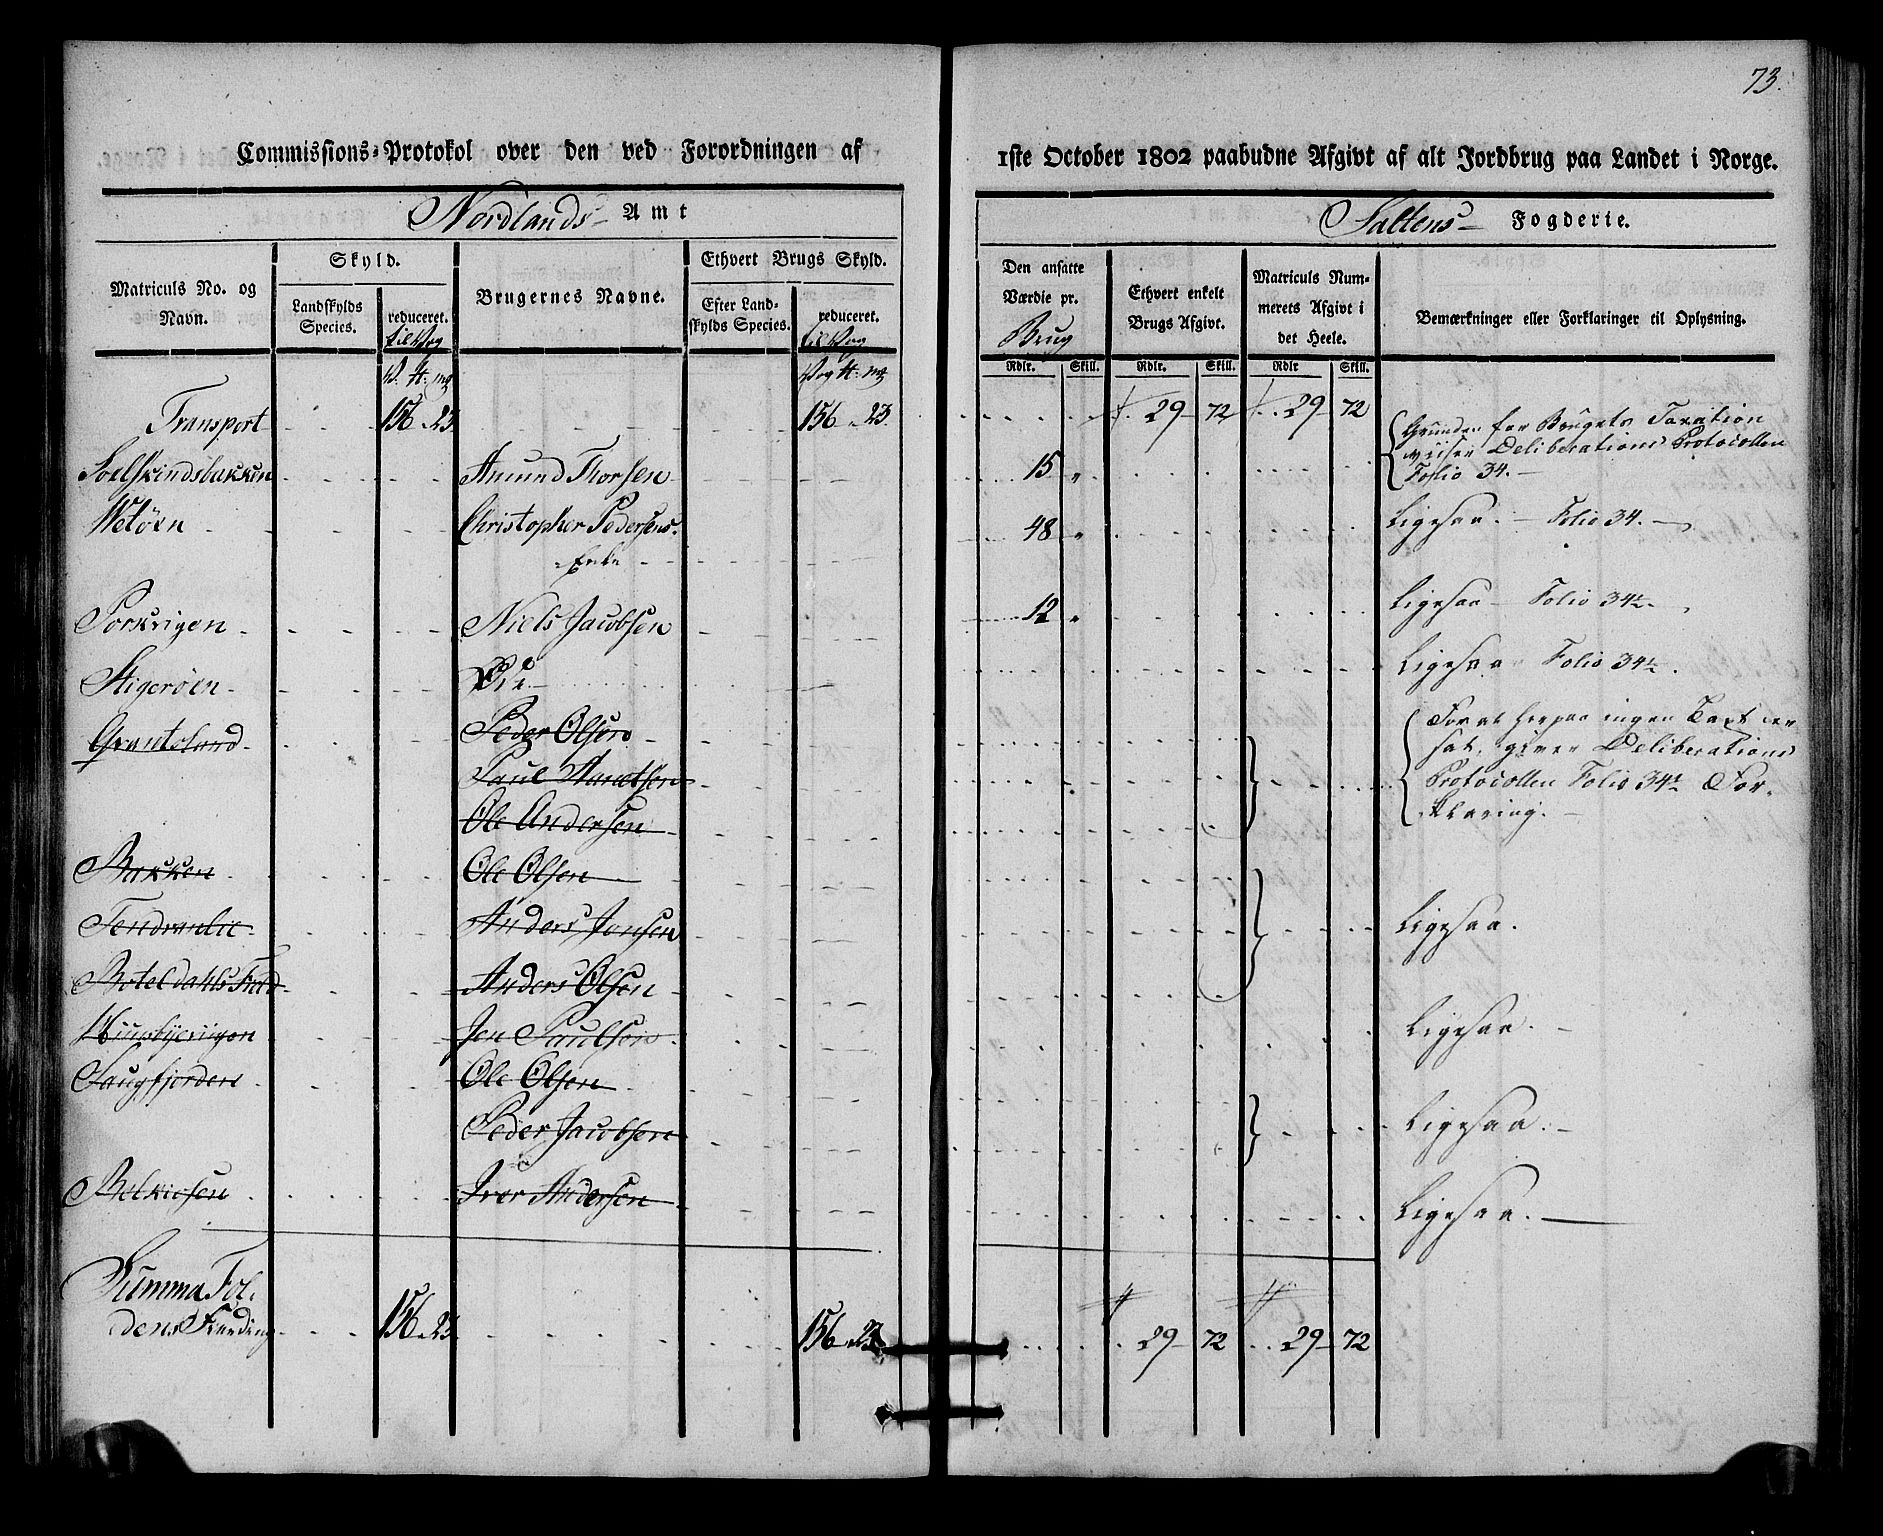 73.
Commissions-Protokol over den ved Forordningen af
1ste October 1802 paabudne Afgivt af alt Jordbrug paa Landet i Norge.
Nordlands Amt
Saltens Fogderie.
Matriculs No. og Navn.
Skyld.
Landskylds Species.
reduceret. til Vog
Brugernes Navne.
Ethvert Brugs Skyld.
Efter Landskylds Species.
reduceret. til Vog
Den ansatte Værdie pr. Brug
Ethvert enkelt Brugs Afgivt.
Matriculs Nummerets Afgivt i det Heele.
Bemærkninger eller Forklaringer til Oplysning.
Rdlr. Skill. Rdlr. Skill. Rdlr Skill.
V. mg Vog mg
Transport 156 23 156 23 29 72 29 72
Soelskindsbakken Amund Thorsen 15 Grunden for Brugets Taxation
viiser Deliberations Protocollen
Folio 34.
Wetøen Christopher Pedersens 48 Ligesaa. Folio 34.
Enke
Torkvigen Niels Jacobsen 12 Ligesaa Folio 34
Stigerøen Ligesaa Folio 34
Grantoland Peder Olsen For at herpaa ingen Taxt er
Paul sat, giver Deliberations
Ole Andersen Protocollen Folio 34 For-
klaring.
Bakken Ole Olsen
Anders Jonsen Ligesaa.
Anders Olsen
Jon Paulsen Ligesaa.
Ole Olsen
Peder Jacobsen Ligesaa.
Iver Andersen Ligesaa.
Summa Fol-
dens Fierding 156 23 156 23 29 72 29 72